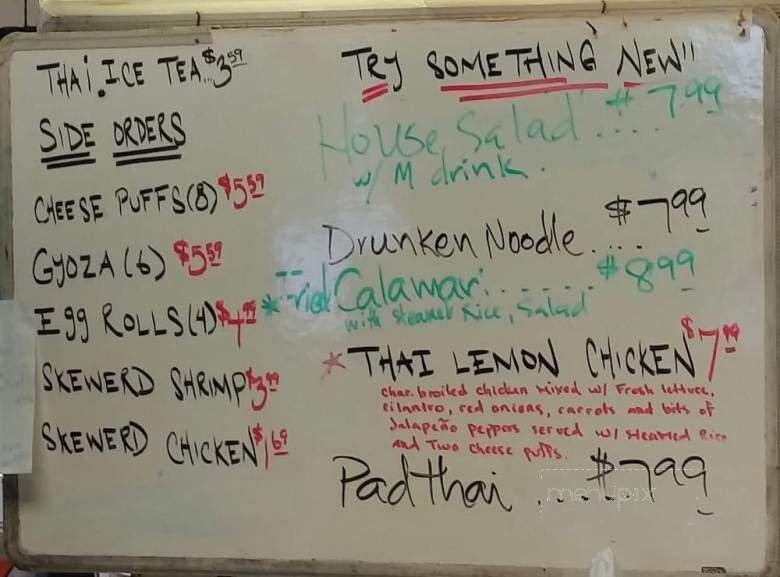 THAI.ICE TEA..$3.59
SIDE ORDERS
CHEESE PUFFS(8) $5.59
GYOZA (6) $5.59
Egg ROLLS(4) $4.99
SKEWERD SHRIMP $3.99
SKEWERD CHICKEN $1.69
TRY SOMETHING NEW!!
House Salad .... $7.99
w/ M drink.
Drunken Noodle..... $7.99
*Fried Calamari....... $8.99
with steamed Rice, Salad
* THAI LEMON CHICKEN $7.99
char.broiled chicken mixed w/ Fresh lettuce,
cilantro, red onions, carrots and bits of
Jalapeño peppers served w/ steamed Rice
and Two cheese puffs.
Pad thai ..... $7.99
menupix